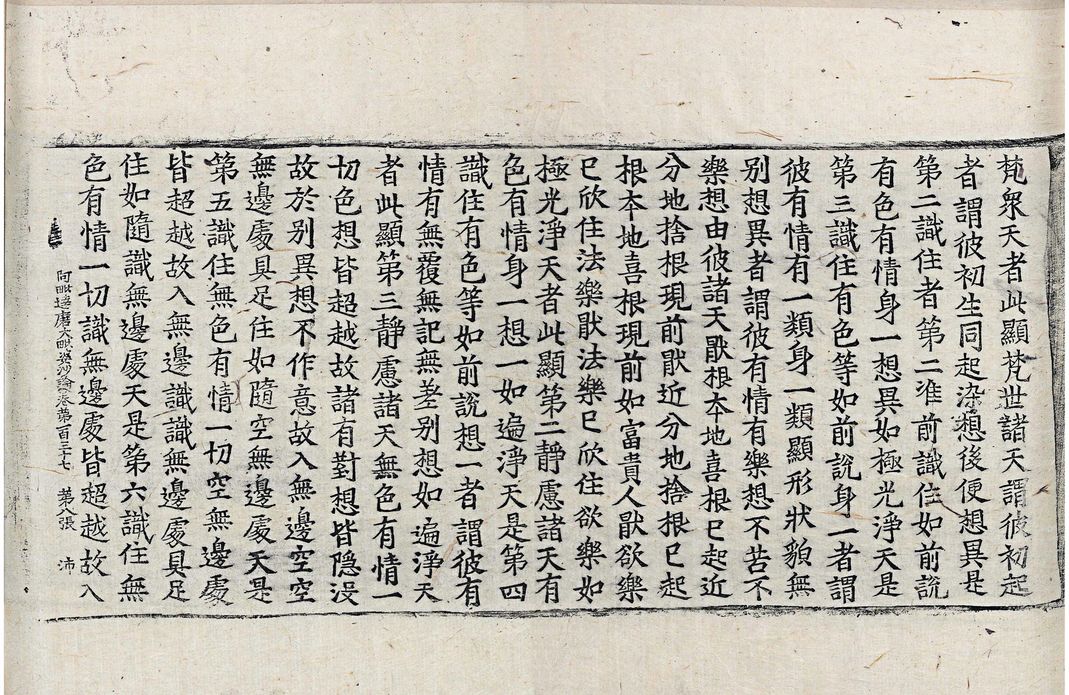 梵衆天者此顯梵世諸天謂彼初起
者謂彼初生同起染想後便想異是
第二識住者第二准前識住如前說
有色有情身一想異如極光淨天是
第三識住有色等如前說身一者謂
彼有情有一類身一類顯形狀貌無
別想異者謂彼有情有樂想不苦不
樂想由彼諸天厭根本地喜根已起近
分地捨根現前厭近分地捨根已起
根本地喜根現前如富貴人厭欲樂
已欣住法樂厭法樂已欣住欲樂如
極光淨天者此顯第二靜慮諸天有
色有情身一想一如遍淨天是第四
識住有色等如前說想一者謂彼有
情有無覆無記無差别想如遍淨天
者此顯第三靜慮諸天無色有情一
切色想皆超越故諸有對想皆隐没
故於别異想不作意故入無邊空空
無邊處具足住如隨空無邊處天是
第五識住無色有情一切空無邊處
皆超越故入無邊識識無邊處具足
住如隨識無邊處天是第六識住無
色有情一切識無邊處皆超越故入
阿毗達磨大毗婆沙論卷第一百三十七 第八張 沛